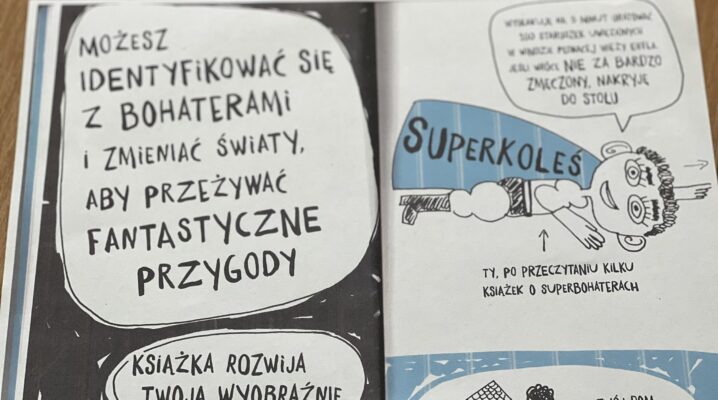 MOŻESZ
IDENTYFIKOWAĆ SIĘ
Z BOHATERAMI
I ZMIENIAĆ ŚWIATY,
ABY PRZEŻYWAĆ
FANTASTYCZNE
PRZYGODY
KSIĄŻKA ROZWIJA
TWOJĄ WYOBRAŹNIĘ
WYSKAKUJĘ NA 5 MINUT URATOWAĆ
STARUSZEK UWIĘZIONYCH
W WINDZIE PŁONĄCEJ WIEŻY EIFFLA.
JEŚLI WRÓCĘ NIE ZA BARDZO
ZMĘCZONY, NAKRYJĘ
DO STOŁU
SUPERKOLEŚ
TY, PO PRZECZYTANIU KILKU
KSIĄŻEK O SUPERBOHATERACH
DOM